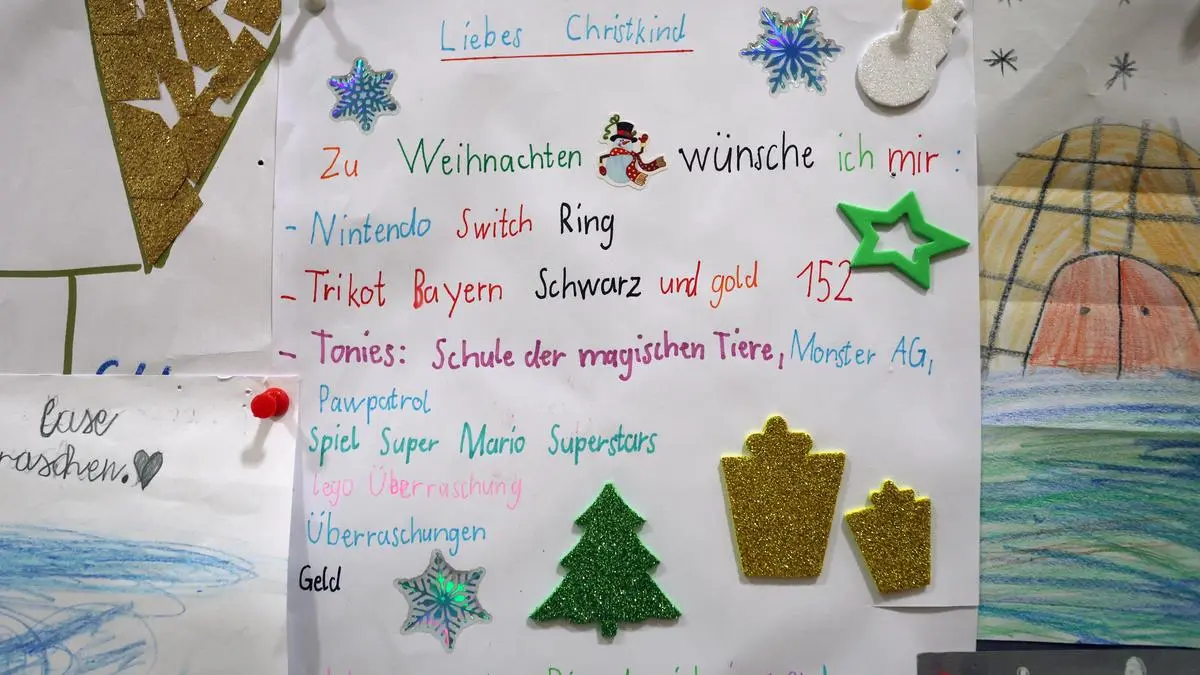 Liebes Christkind
Zu Weihnachten wünsche ich mir :
- Nintendo Switch Ring
- Trikot Bayern Schwarz und gold 152
- Tonies: Schule der magischen Tiere, Monster AG,
Pawpatrol
Spiel Super Mario Superstars
lego Überraschung
Überraschungen
Geld